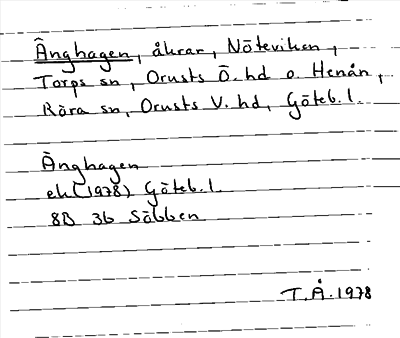 Änghagen, åkrar, Nöteviken,
Torps sn, Orusts Ö. hd o. Henån,
Röra sn, Orusts V. hd, Göteb. l.
Änghagen
ek (1978) Göteb. l.
8B 3b Säbben
T.Å. 1978